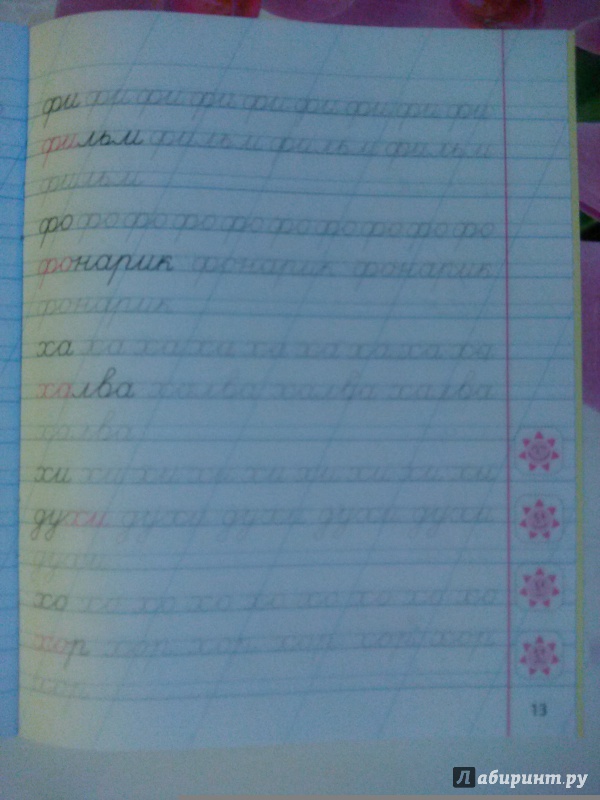 фи фи фи фи фи фи фи фи фи
фильм фильм фильм фильм
фильм
фо фо фо фо фо фо фо фо фо
фонарик фонарик фонарик
фонарик
ха ха ха ха ха ха ха ха ха
халва халва халва халва
халва
хи хи хи хи хи хи хи хи хи
духи духи духи духи духи
духи
хо хо хо хо хо хо хо хо хо
хор хор хор хор хор хор
хор
13
Лабиринт.ру